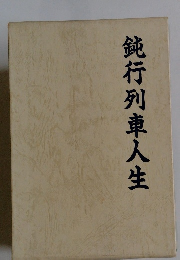 鈍行列車人生